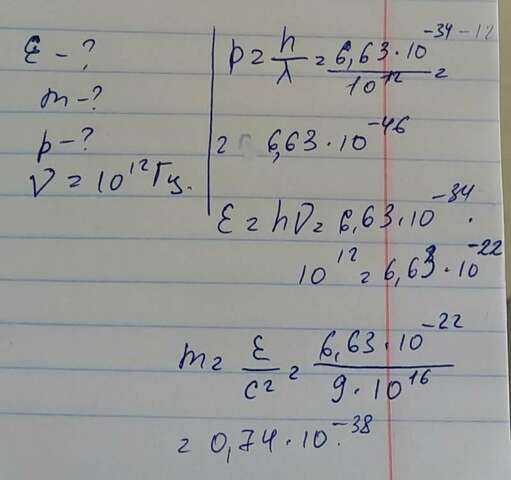 ε - ?
m - ?
p - ?
ν = 10¹² Гц.
p = h/λ = 6,63 · 10⁻³⁴⁻¹²/10¹² =
= 6,63 · 10⁻⁴⁶
ε = hν = 6,63 · 10⁻³⁴ ·
10¹² = 6,63 · 10⁻²²
m = ε/c² = 6,63 · 10⁻²²/9 · 10¹⁶
= 0,74 · 10⁻³⁸